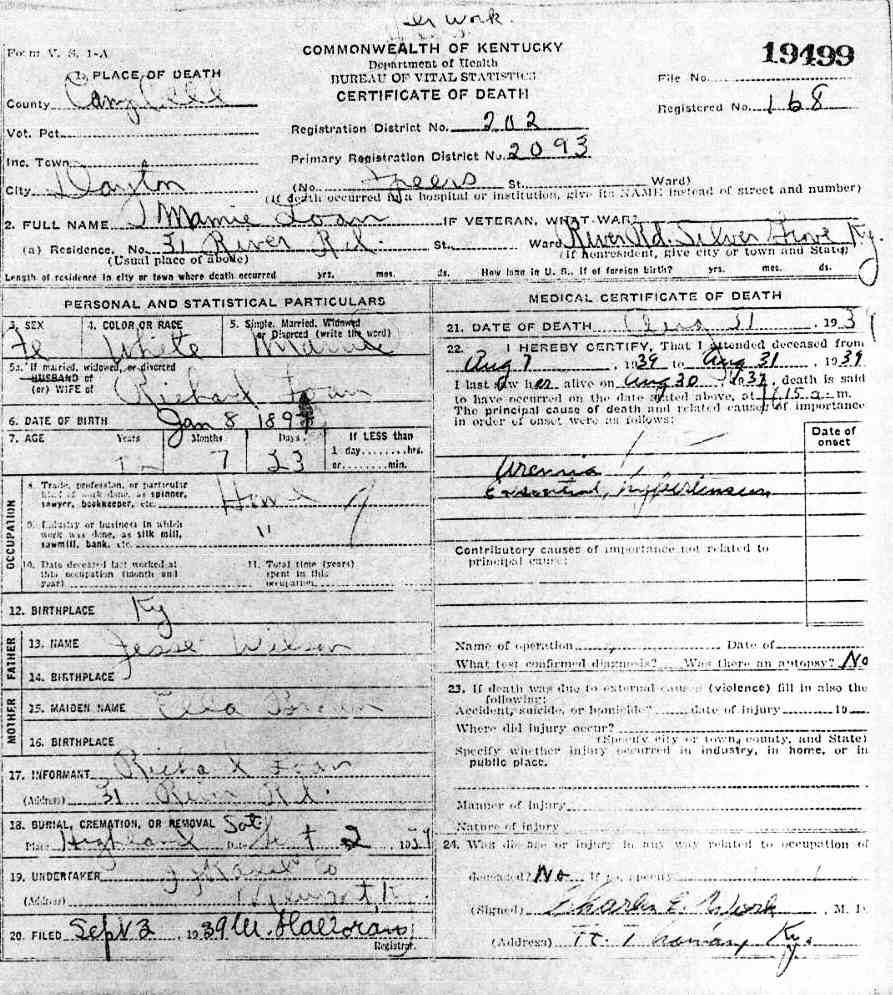 Dr Work.
Form V. S. 1-A
COMMONWEALTH OF KENTUCKY
Department of Health
BUREAU OF VITAL STATISTICS
CERTIFICATE OF DEATH
19499
File No.
Registered No. 168
1. PLACE OF DEATH
County Campbell
Vot. Pct.
Inc. Town
City Dayton
Registration District No. 202
Primary Registration District No. 2093
(No. Speers St. Ward)
(If death occurred in a hospital or institution, give its NAME instead of street and number)
2. FULL NAME Mamie Loan IF VETERAN, WHAT WAR?
(a) Residence, No. 31 River Rd. St. Ward River Rd. Silver Grove Ky.
(Usual place of abode) (If nonresident, give city or town and State)
Length of residence in city or town where death occurred yrs. mos. ds. How long in U. S., if of foreign birth? yrs. mos. ds.
PERSONAL AND STATISTICAL PARTICULARS
3. SEX 4. COLOR OR RACE 5. Single, Married, Widowed or Divorced (write the word)
Fe White Married
5a. If married, widowed, or divorced
HUSBAND of
(or) WIFE of Richard Loan
6. DATE OF BIRTH Jan 8, 189
7. AGE Years Months Days If LESS than
7 23 1 day hrs.
or min.
OCCUPATION
8. Trade, profession, or particular
kind of work done, as spinner,
sawyer, bookkeeper, etc. Home
9. Industry or business in which
work was done, as silk mill,
sawmill, bank, etc. "
10. Date deceased last worked at
this occupation (month and
year)
11. Total time (years)
spent in this
occupation
12. BIRTHPLACE Ky
FATHER
13. NAME Jesse Wilson
14. BIRTHPLACE
MOTHER
15. MAIDEN NAME Ella
16. BIRTHPLACE
17. INFORMANT Richard Loan
(Address) 31 River Rd.
18. BURIAL, CREMATION, OR REMOVAL Sat
Place Highland Date Sept 2, 1939
19. UNDERTAKER
(Address)
20. FILED Sept 3, 1939 W. Halloran
Registrar.
MEDICAL CERTIFICATE OF DEATH
21. DATE OF DEATH Aug 31, 1939
22. I HEREBY CERTIFY, That I attended deceased from
Aug 7, 1939 to Aug 31, 1939
I last saw her alive on Aug 30, 1939, death is said
to have occurred on the date stated above, at 11:15 a. m.
The principal cause of death and related causes of importance
in order of onset were as follows:
Date of
onset
Uremia
Essential Hypertension
Contributory causes of importance not related to
principal cause:
Name of operation Date of
What test confirmed diagnosis? Was there an autopsy? No
23. If death was due to external causes (violence) fill in also the
following:
Accident, suicide, or homicide? date of injury 19
Where did injury occur?
(Specify city or town, county, and State)
Specify whether injury occurred in industry, in home, or in
public place.
Manner of injury
Nature of injury
24. Was disease or injury in any way related to occupation of
deceased? No If so, specify
(Signed) Charles E. Work, M. D.
(Address) Ft. Thomas, Ky.